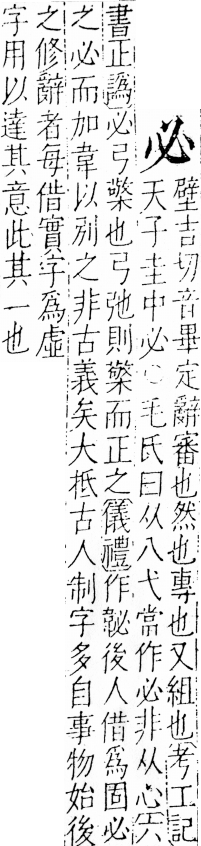 必
壁吉切音畢定辭審也然也專也又組也考工記
天子圭中必○毛氏曰从八弋當作必非从心六
書正譌必弓檠也弓弛則檠而正之儀禮作䪐後人借爲固必
之必而加韋以別之非古義矣大抵古人制字多自事物始後
之修辭者每借實字爲虛
字用以達其意此其一也